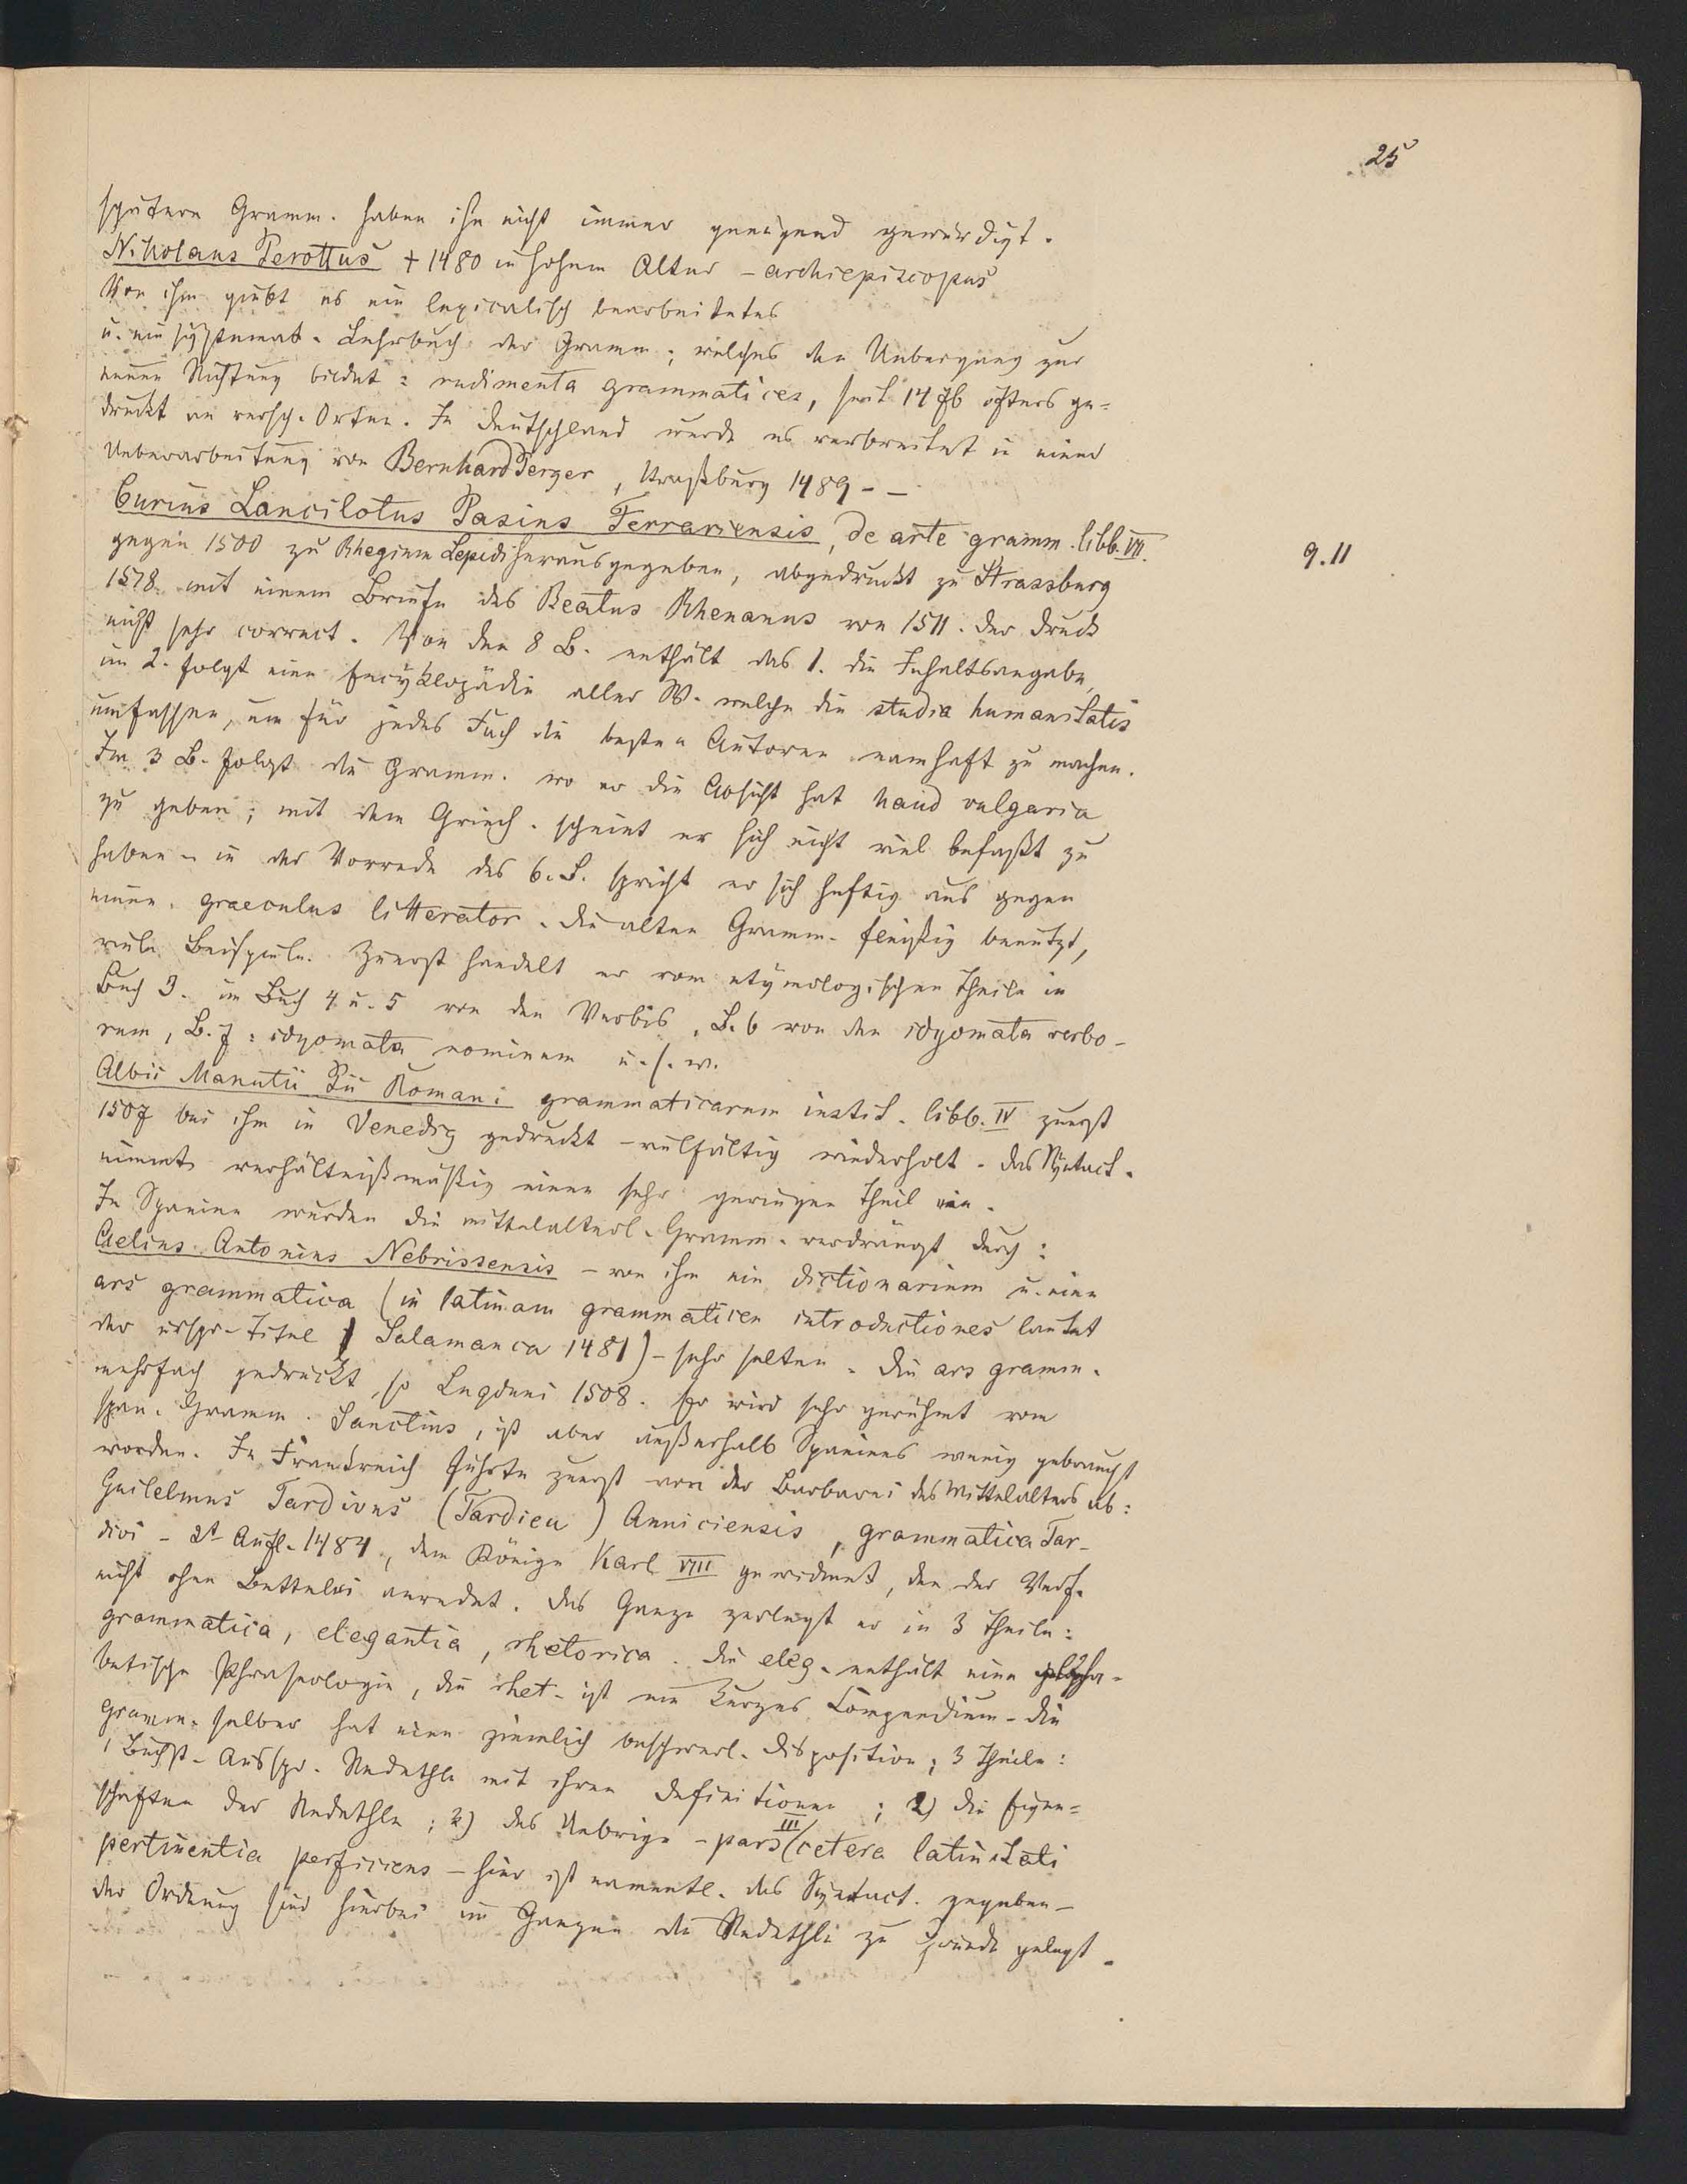 25
spätern Gramm. haben ihn nicht immer genügend gewürdigt.
Nikolaus Perottus † 1480 in hohem Alter – archiepiscopus
Von ihm giebt es ein lexicalisch bearbeitetes
u. ein systemat. Lehrbuch der Gramm; welches den Uebergang zur
neuen Richtung bildet: rudimenta grammatices, seit 1476 öfters ge=
druckt an versch. Orten. In Deutschland wurde es verbreitet in einer
Ueberarbeitung von Bernhard Perger, Straßburg 1489 – –
Curius Lancilotus Pasius Ferrariensis, de arte gramm. libb. VIII.
9.11
gegen 1500 zu Rhegium Lepidi herausgegeben, abgedruckt zu Strassburg
1518 mit einem Briefe des Beatus Rhenanus von 1511. der Druck
nicht sehr correct. Von den 8 B. enthält das 1. die Inhaltsangabe,
im 2. folgt eine Encyklopädie aller W. welche die studia humanitatis
umfassen, um für jedes Fach die besten Autoren namhaft zu machen.
Im 3 B. folgt die Gramm. wo er die Absicht hat haud vulgaria
zu geben; mit dem Griech. scheint er sich nicht viel befaßt zu
haben – in der Vorrede des 6. B. spricht er sich heftig aus gegen
einen graeculus litterator. Die alten Gramm. fleißig benutzt,
viele Beispiele. Zuerst handelt er vom etymologischen Theile in
Buch 3. im Buch 4 u. 5 von den Verbis, B. 6 von den idyomata verbo-
rum, B. 7: idyomata nominum u. s. w.
Albii Manutii Pii Romani grammaticarum instit. libb. IV zuerst
1507 bei ihm in Venedig gedruckt – vielfältig wiederholt. Das Syntact.
nimmt verhältnißmäßig einen sehr geringen Theil ein.
In Spanien wurden die mittelalterl. Gramm. verdrängt durch:
Aelius Antonius Nebrissensis – von ihm ein dictionarium u. eine
ars grammatica (in latinam grammaticen introductiones lautet
der urspr. Titel Salamanca 1481) – sehr selten. Die ars gramm.
mehrfach gedruckt, so Lugduni 1508. Er wird sehr gerühmt vom
span. Gramm. Sanctius, ist aber außerhalb Spaniens wenig gebraucht
worden. In Frankreich führte zuerst von der Barbarei des Mittelalters ab:
Guilelmus Tardivus (Tardieu) Anniciensis, grammatica Tar-
divi – 2t Aufl. 1484, dem Könige Karl VIII gewidmet, den der Verf.
nicht ohne Bettelei anredet. Das Ganze zerlegt er in 3 Theile:
grammatica, elegantia, rhetorica. Die eleg. enthält eine alpha-
betische Phraseologie, die rhet. ist ein kurzes Compendium – die
gramm. selber hat eine ziemlich beschwerl. Disposition; 3 Theile:
1 Buchst. Ausspr. Redethle mit ihren Definitionen; 2) die Eigen=
schaften der Redethle; 3) das Uebrige – pars III cetera latinitati
pertinentia perficiens – hier ist namentl. das Syntact. gegeben –
der Ordnung sind hierbei im Ganzen die Redethle zu Grunde gelegt.